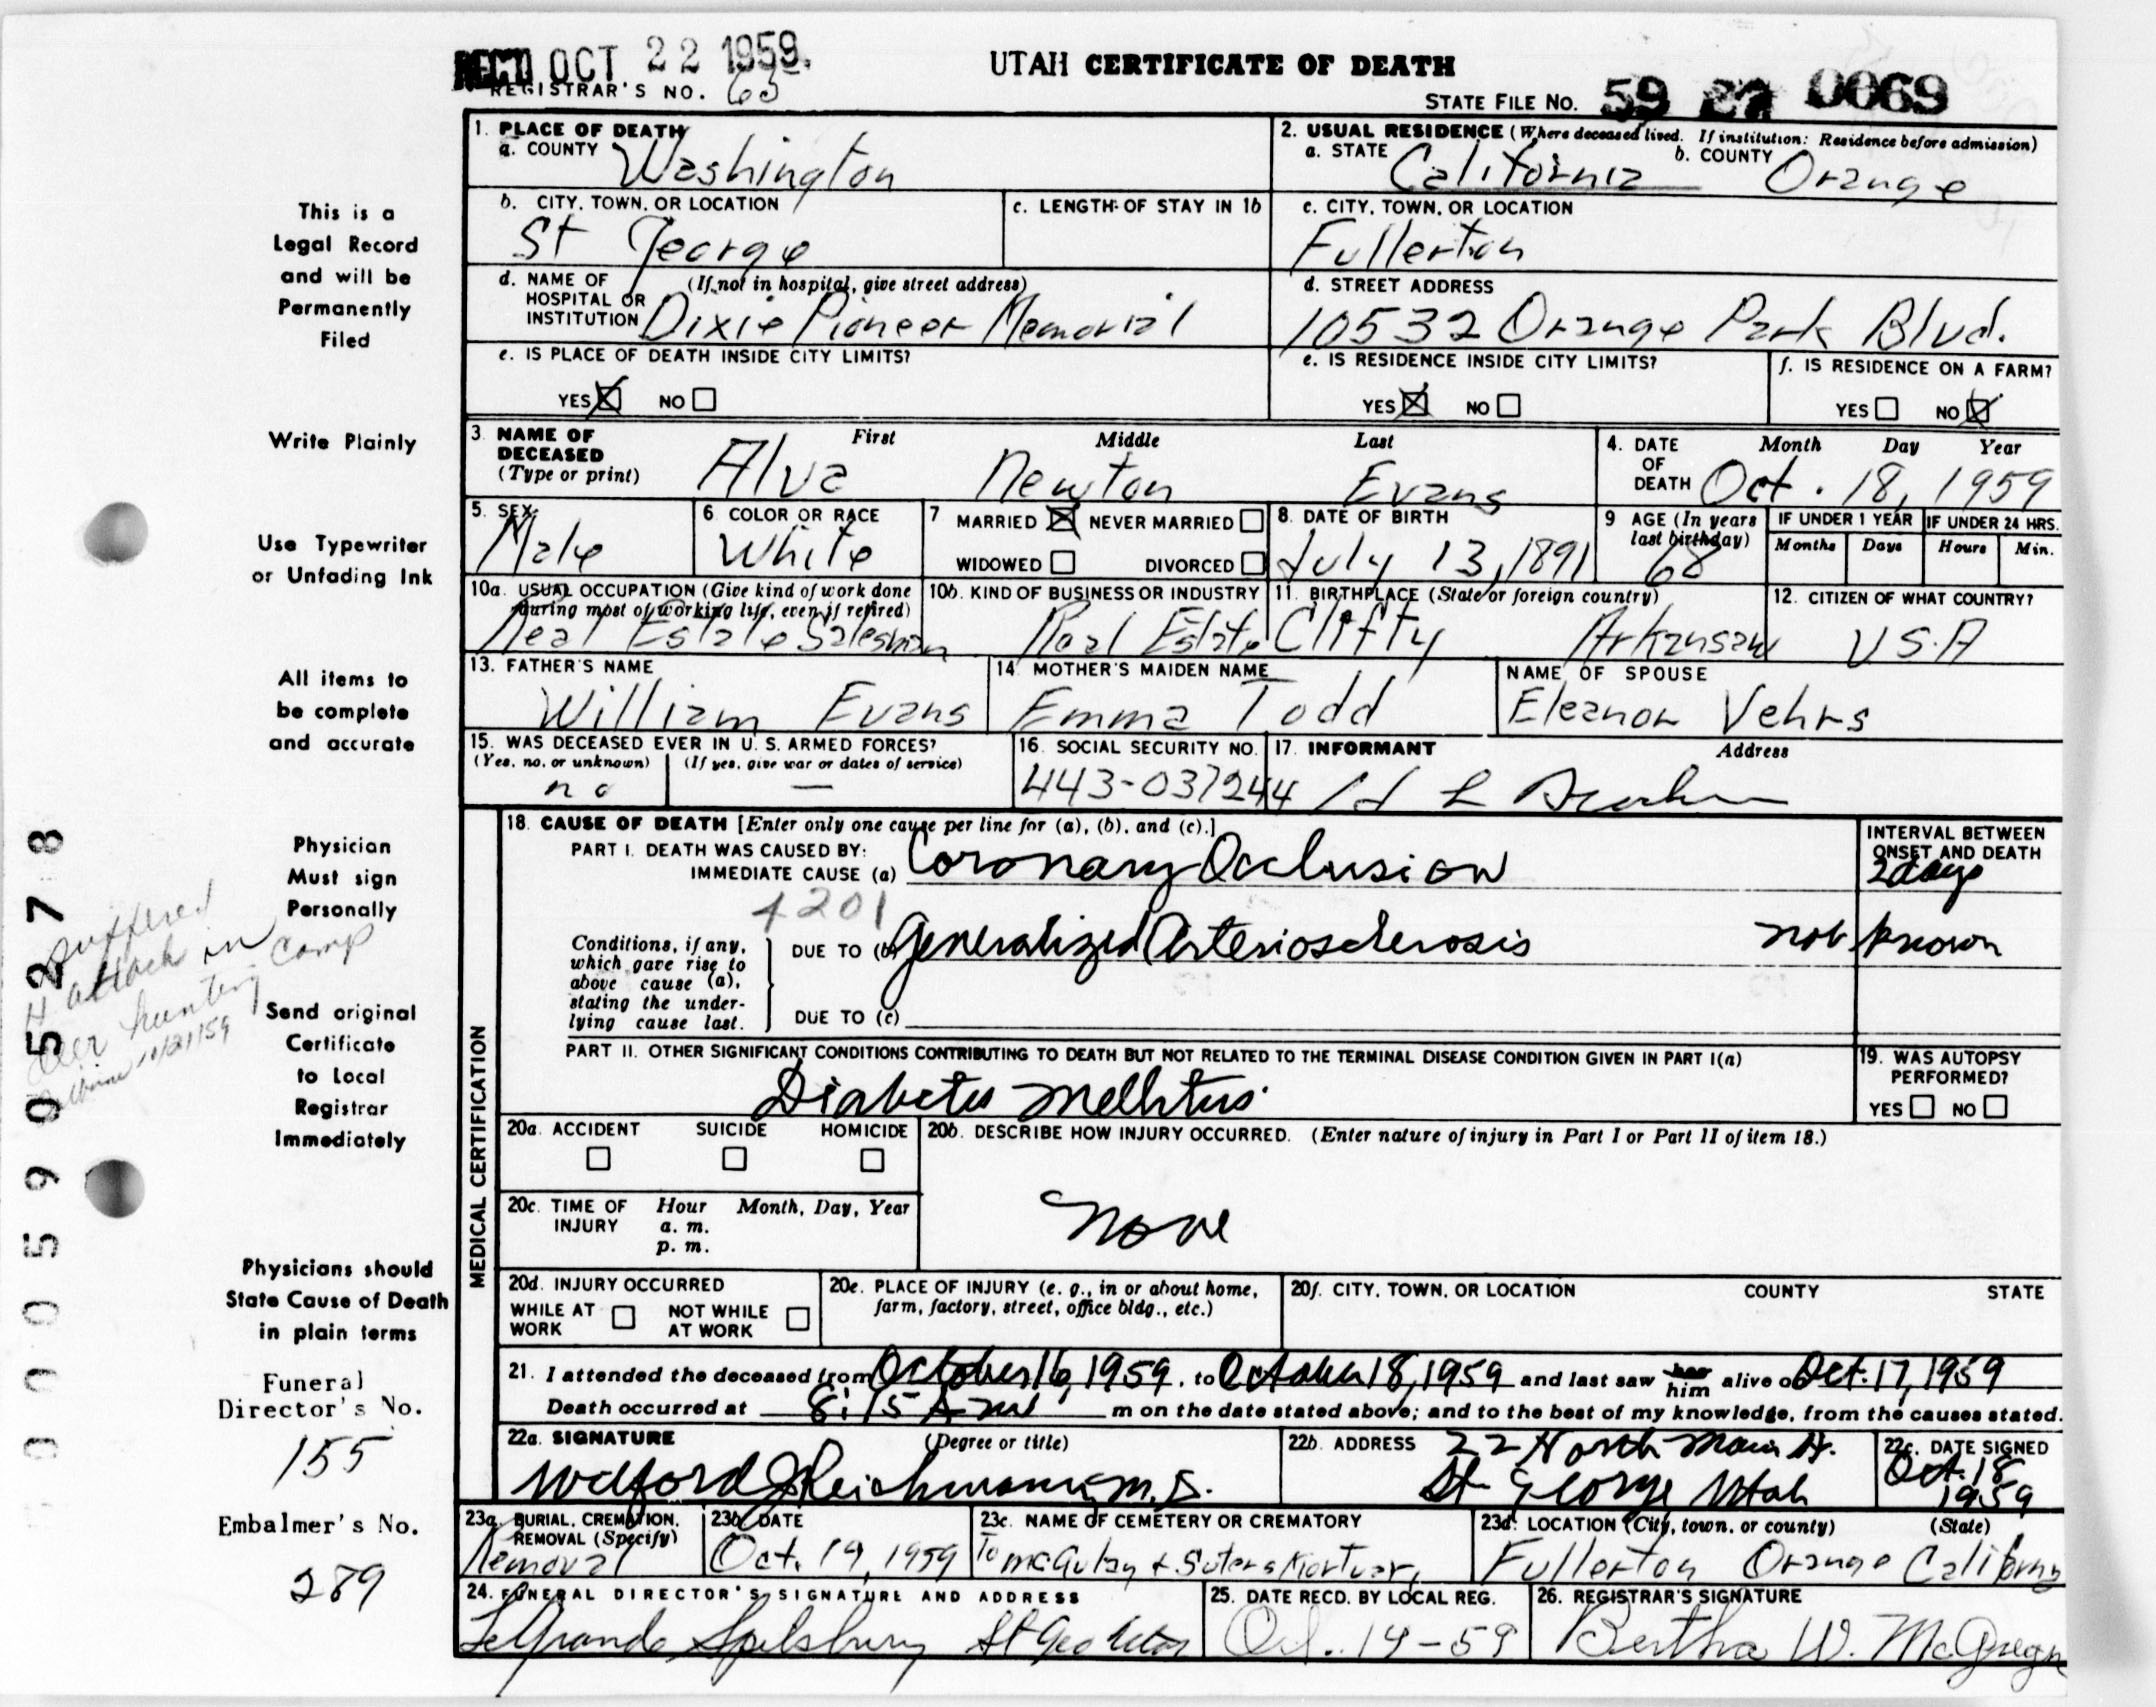 REC'D OCT 22 1959
REGISTRAR'S NO. 63
UTAH CERTIFICATE OF DEATH
STATE FILE NO. 59 27 0069
1. PLACE OF DEATH
a. COUNTY Washington
2. USUAL RESIDENCE (Where deceased lived. If institution: Residence before admission)
a. STATE California b. COUNTY Orange
b. CITY, TOWN, OR LOCATION
St George
c. LENGTH OF STAY IN 1b
c. CITY, TOWN, OR LOCATION
Fullerton
d. NAME OF HOSPITAL OR INSTITUTION (If not in hospital, give street address)
Dixie Pioneer Memorial
d. STREET ADDRESS
10532 Orange Park Blvd.
e. IS PLACE OF DEATH INSIDE CITY LIMITS?
YES ☒ NO ☐
e. IS RESIDENCE INSIDE CITY LIMITS?
YES ☒ NO ☐
f. IS RESIDENCE ON A FARM?
YES ☐ NO ☒
3. NAME OF DECEASED (Type or print)
First Middle Last
Alva Newton Evans
4. DATE OF DEATH Month Day Year
Oct. 18, 1959
5. SEX
Male
6. COLOR OR RACE
White
7 MARRIED ☒ NEVER MARRIED ☐
WIDOWED ☐ DIVORCED ☐
8. DATE OF BIRTH
July 13, 1891
9 AGE (In years last birthday)
68
IF UNDER 1 YEAR
Months Days
IF UNDER 24 HRS.
Hours Min.
10a. USUAL OCCUPATION (Give kind of work done during most of working life, even if retired)
Real Estate Salesman
10b. KIND OF BUSINESS OR INDUSTRY
Real Estate
11. BIRTHPLACE (State or foreign country)
Clifty Arkansaw
12. CITIZEN OF WHAT COUNTRY?
U S.A
13. FATHER'S NAME
William Evans
14 MOTHER'S MAIDEN NAME
Emma Todd
NAME OF SPOUSE
Eleanor Vehrs
15. WAS DECEASED EVER IN U. S. ARMED FORCES?
(Yes, no, or unknown) (If yes, give war or dates of service)
no —
16. SOCIAL SECURITY NO.
443-037244
17. INFORMANT Address
MEDICAL CERTIFICATION
18. CAUSE OF DEATH [Enter only one cause per line for (a), (b), and (c).]
PART I. DEATH WAS CAUSED BY:
IMMEDIATE CAUSE (a) Coronary Occlusion
INTERVAL BETWEEN ONSET AND DEATH
2 days
4201
Conditions, if any, which gave rise to above cause (a), stating the underlying cause last.
DUE TO (b) Generalized Arteriosclerosis not known
DUE TO (c)
PART II. OTHER SIGNIFICANT CONDITIONS CONTRIBUTING TO DEATH BUT NOT RELATED TO THE TERMINAL DISEASE CONDITION GIVEN IN PART I(a)
Diabetes Mellitus
19. WAS AUTOPSY PERFORMED?
YES ☐ NO ☐
20a. ACCIDENT SUICIDE HOMICIDE
20b. DESCRIBE HOW INJURY OCCURRED. (Enter nature of injury in Part I or Part II of item 18.)
none
20c. TIME OF INJURY Hour Month, Day, Year
a. m.
p. m.
20d. INJURY OCCURRED
WHILE AT WORK ☐ NOT WHILE AT WORK ☐
20e. PLACE OF INJURY (e. g., in or about home, farm, factory, street, office bldg., etc.)
20f. CITY, TOWN, OR LOCATION COUNTY STATE
21. I attended the deceased from October 16, 1959, to October 18, 1959 and last saw her him alive on Oct. 17, 1959
Death occurred at 8:15 A m m on the date stated above; and to the best of my knowledge, from the causes stated.
22a. SIGNATURE (Degree or title)
Wilford J Reichmann, M.D.
22b. ADDRESS 22 North Main St.
St George Utah
22c. DATE SIGNED
Oct. 18
1959
23a. BURIAL, CREMATION, REMOVAL (Specify)
Removal
23b. DATE
Oct. 19, 1959
23c. NAME OF CEMETERY OR CREMATORY
To McAulay & Suters Mortuary
23d. LOCATION (City, town, or county) (State)
Fullerton Orange California
24. FUNERAL DIRECTOR'S SIGNATURE AND ADDRESS
LeGrande Spilsbury St Geo Utah
25. DATE RECD. BY LOCAL REG.
Oct. 19-59
26. REGISTRAR'S SIGNATURE
Bertha W. McGregor
This is a
Legal Record
and will be
Permanently
Filed
Write Plainly
Use Typewriter
or Unfading Ink
All items to
be complete
and accurate
Physician
Must sign
Personally
Send original
Certificate
to Local
Registrar
Immediately
Physicians should
State Cause of Death
in plain terms
Funeral
Director's No.
155
Embalmer's No.
289
suffered
H attack in
deer hunting camp
11/21/59
0005995278